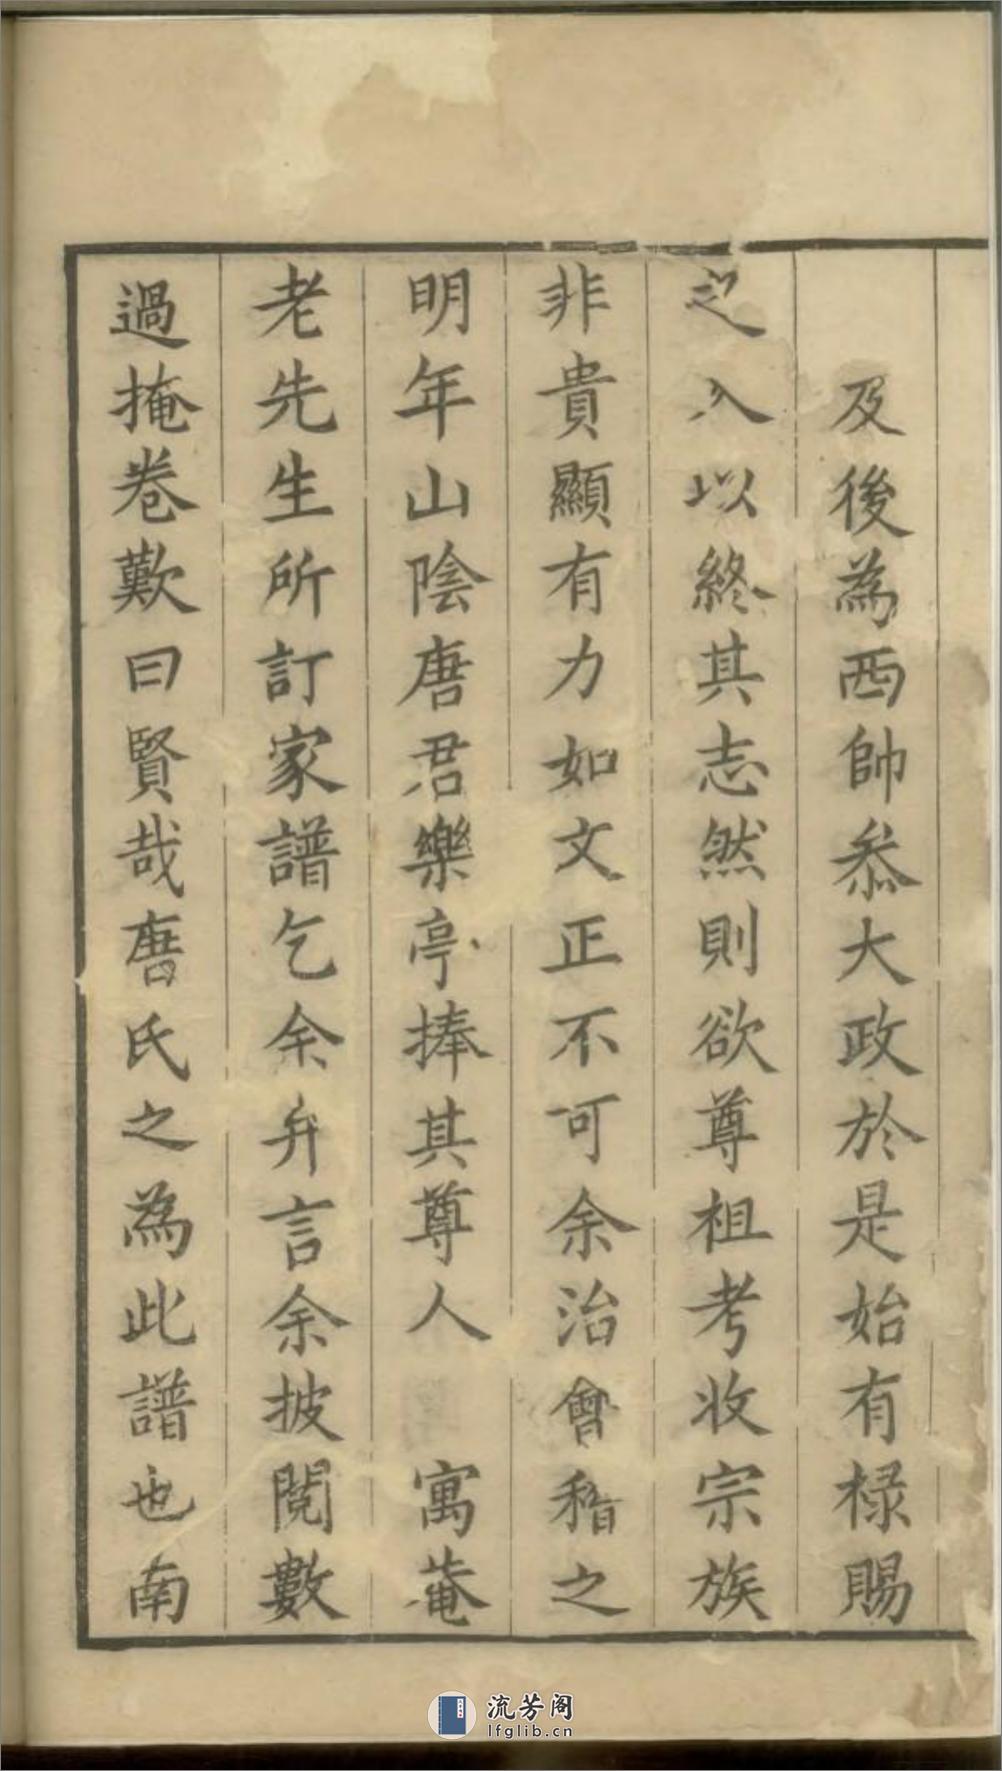 及後為西帥叅大政於是始有祿賜
之入以終其志然則欲尊祖考收宗族
非貴顯有力如文正不可余治會稽之
明年山陰唐君樂亭捧其尊人寓菴
老先生所訂家譜乞余弁言余披閱數
過掩卷歎曰賢哉唐氏之為此譜也南
流芳阁
lfglib.cn